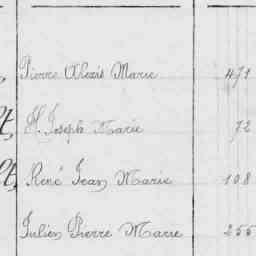 Pierre Alexis Marie 471
H. Joseph Marie 72
René Jean Marie 108
Julien Pierre Marie 255